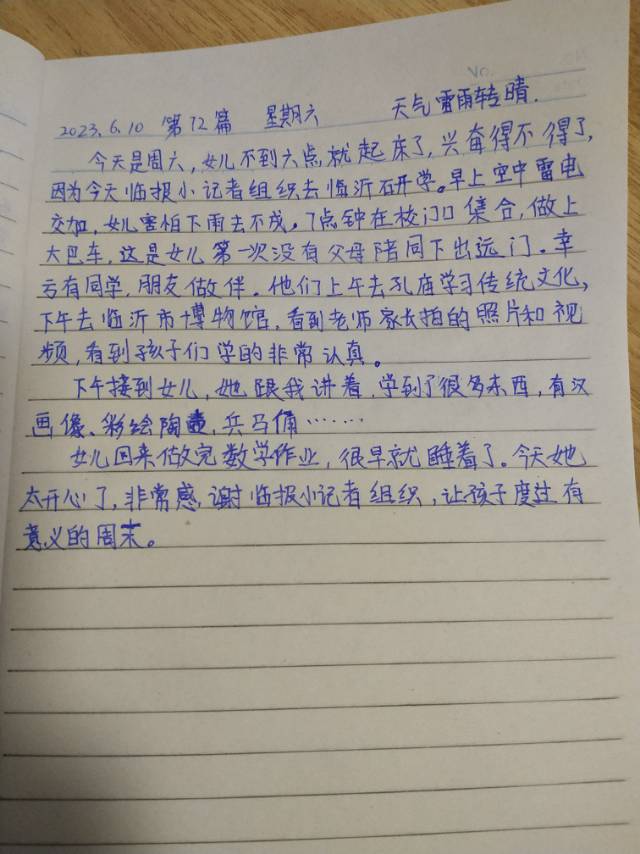 2023.6.10 第12篇 星期六 天气雷雨转晴.
今天是周六,女儿不到六点就起床了,兴奋得不得了,
因为今天临报小记者组织去临沂研学。早上空中雷电
交加,女儿害怕下雨去不成。7点钟在校门口集合,做上
大巴车,这是女儿第一次没有父母陪同下出远门.幸
亏有同学,朋友做伴。他们上午去孔庙学习传统文化,
下午去临沂市博物馆,看到老师家长拍的照片和视
频,看到孩子们学的非常认真。
下午接到女儿,她跟我讲着,学到了很多东西,有汉
画像、彩绘陶壶,兵马俑……
女儿回来做完数学作业,很早就睡着了。今天她
太开心了,非常感谢临报小记者组织,让孩子度过有
意义的周末。